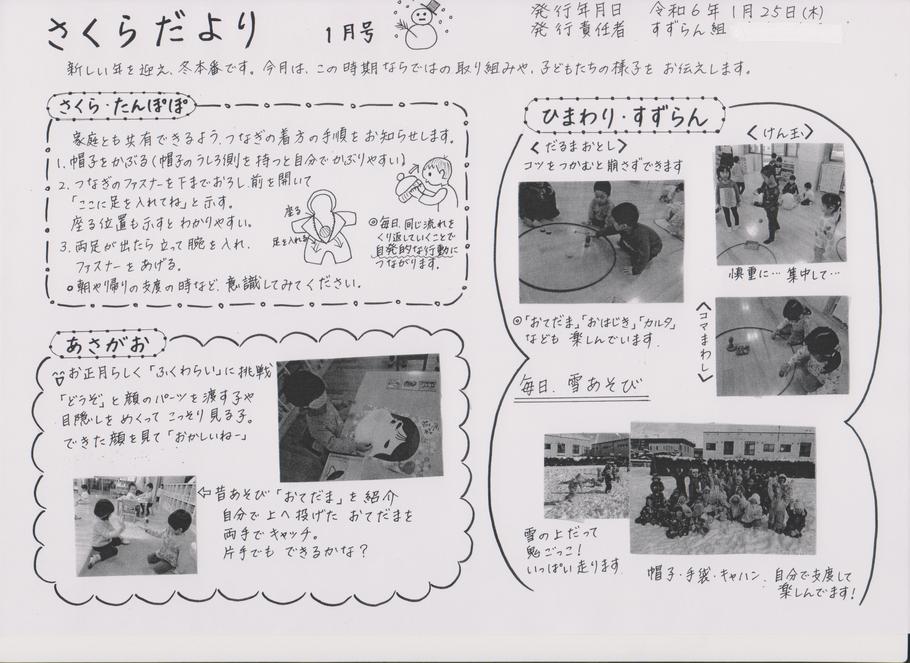 さくらだより 1月号
発行年月日 令和6年1月25日(木)
発行責任者 すずらん組
新しい年を迎え、冬本番です。今月は、この時期ならではの取り組みや、子どもたちの様子をお伝えします。
さくら・たんぽぽ
家庭とも共有できるよう、つなぎの着方の手順をお知らせします。
1. 帽子をかぶる(帽子のうしろ側を持つと自分でかぶりやすい)
2. つなぎのファスナーを下までおろし、前を開いて
「ここに足を入れてね」と示す。
座る位置も示すとわかりやすい。
3. 両足が出たら立って腕を入れ、
ファスナーをあげる。
○朝や帰りの支度の時など、意識してみてください。
座る
足を入れる
◎毎日、同じ流れを
くり返していくことで
自発的な行動に
つながります。
あさがお
お正月らしく「ふくわらい」に挑戦
「どうぞ」と顔のパーツを渡す子や
目隠しをめくってこっそり見る子。
できた顔を見て「おかしいねー」
⇦昔あそび「おてだま」を紹介
自分で上へ投げた おてだまを
両手でキャッチ。
片手でも できるかな?
ひまわり・すずらん
〈だるまおとし〉
コツをつかむと崩さずできます
〈けん玉〉
慎重に…集中して…
〈コマまわし〉
◎「おてだま」「おはじき」「カルタ」
なども 楽しんでいます。
毎日、雪あそび
雪の上だって
鬼ごっこ!
いっぱい走ります
帽子・手袋・キャハン、自分で支度して
楽しんでます!